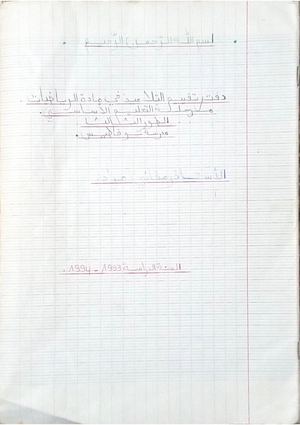 بسم الله الرحمن الرحيم .
دفتر تقييم التلاميذ في مادة الرياضيات .
مرحلة التعليم الأساسي .
الطور الثالث
مدرسة
الأستاذ
السنة الدراسية 1993 - 1994 .